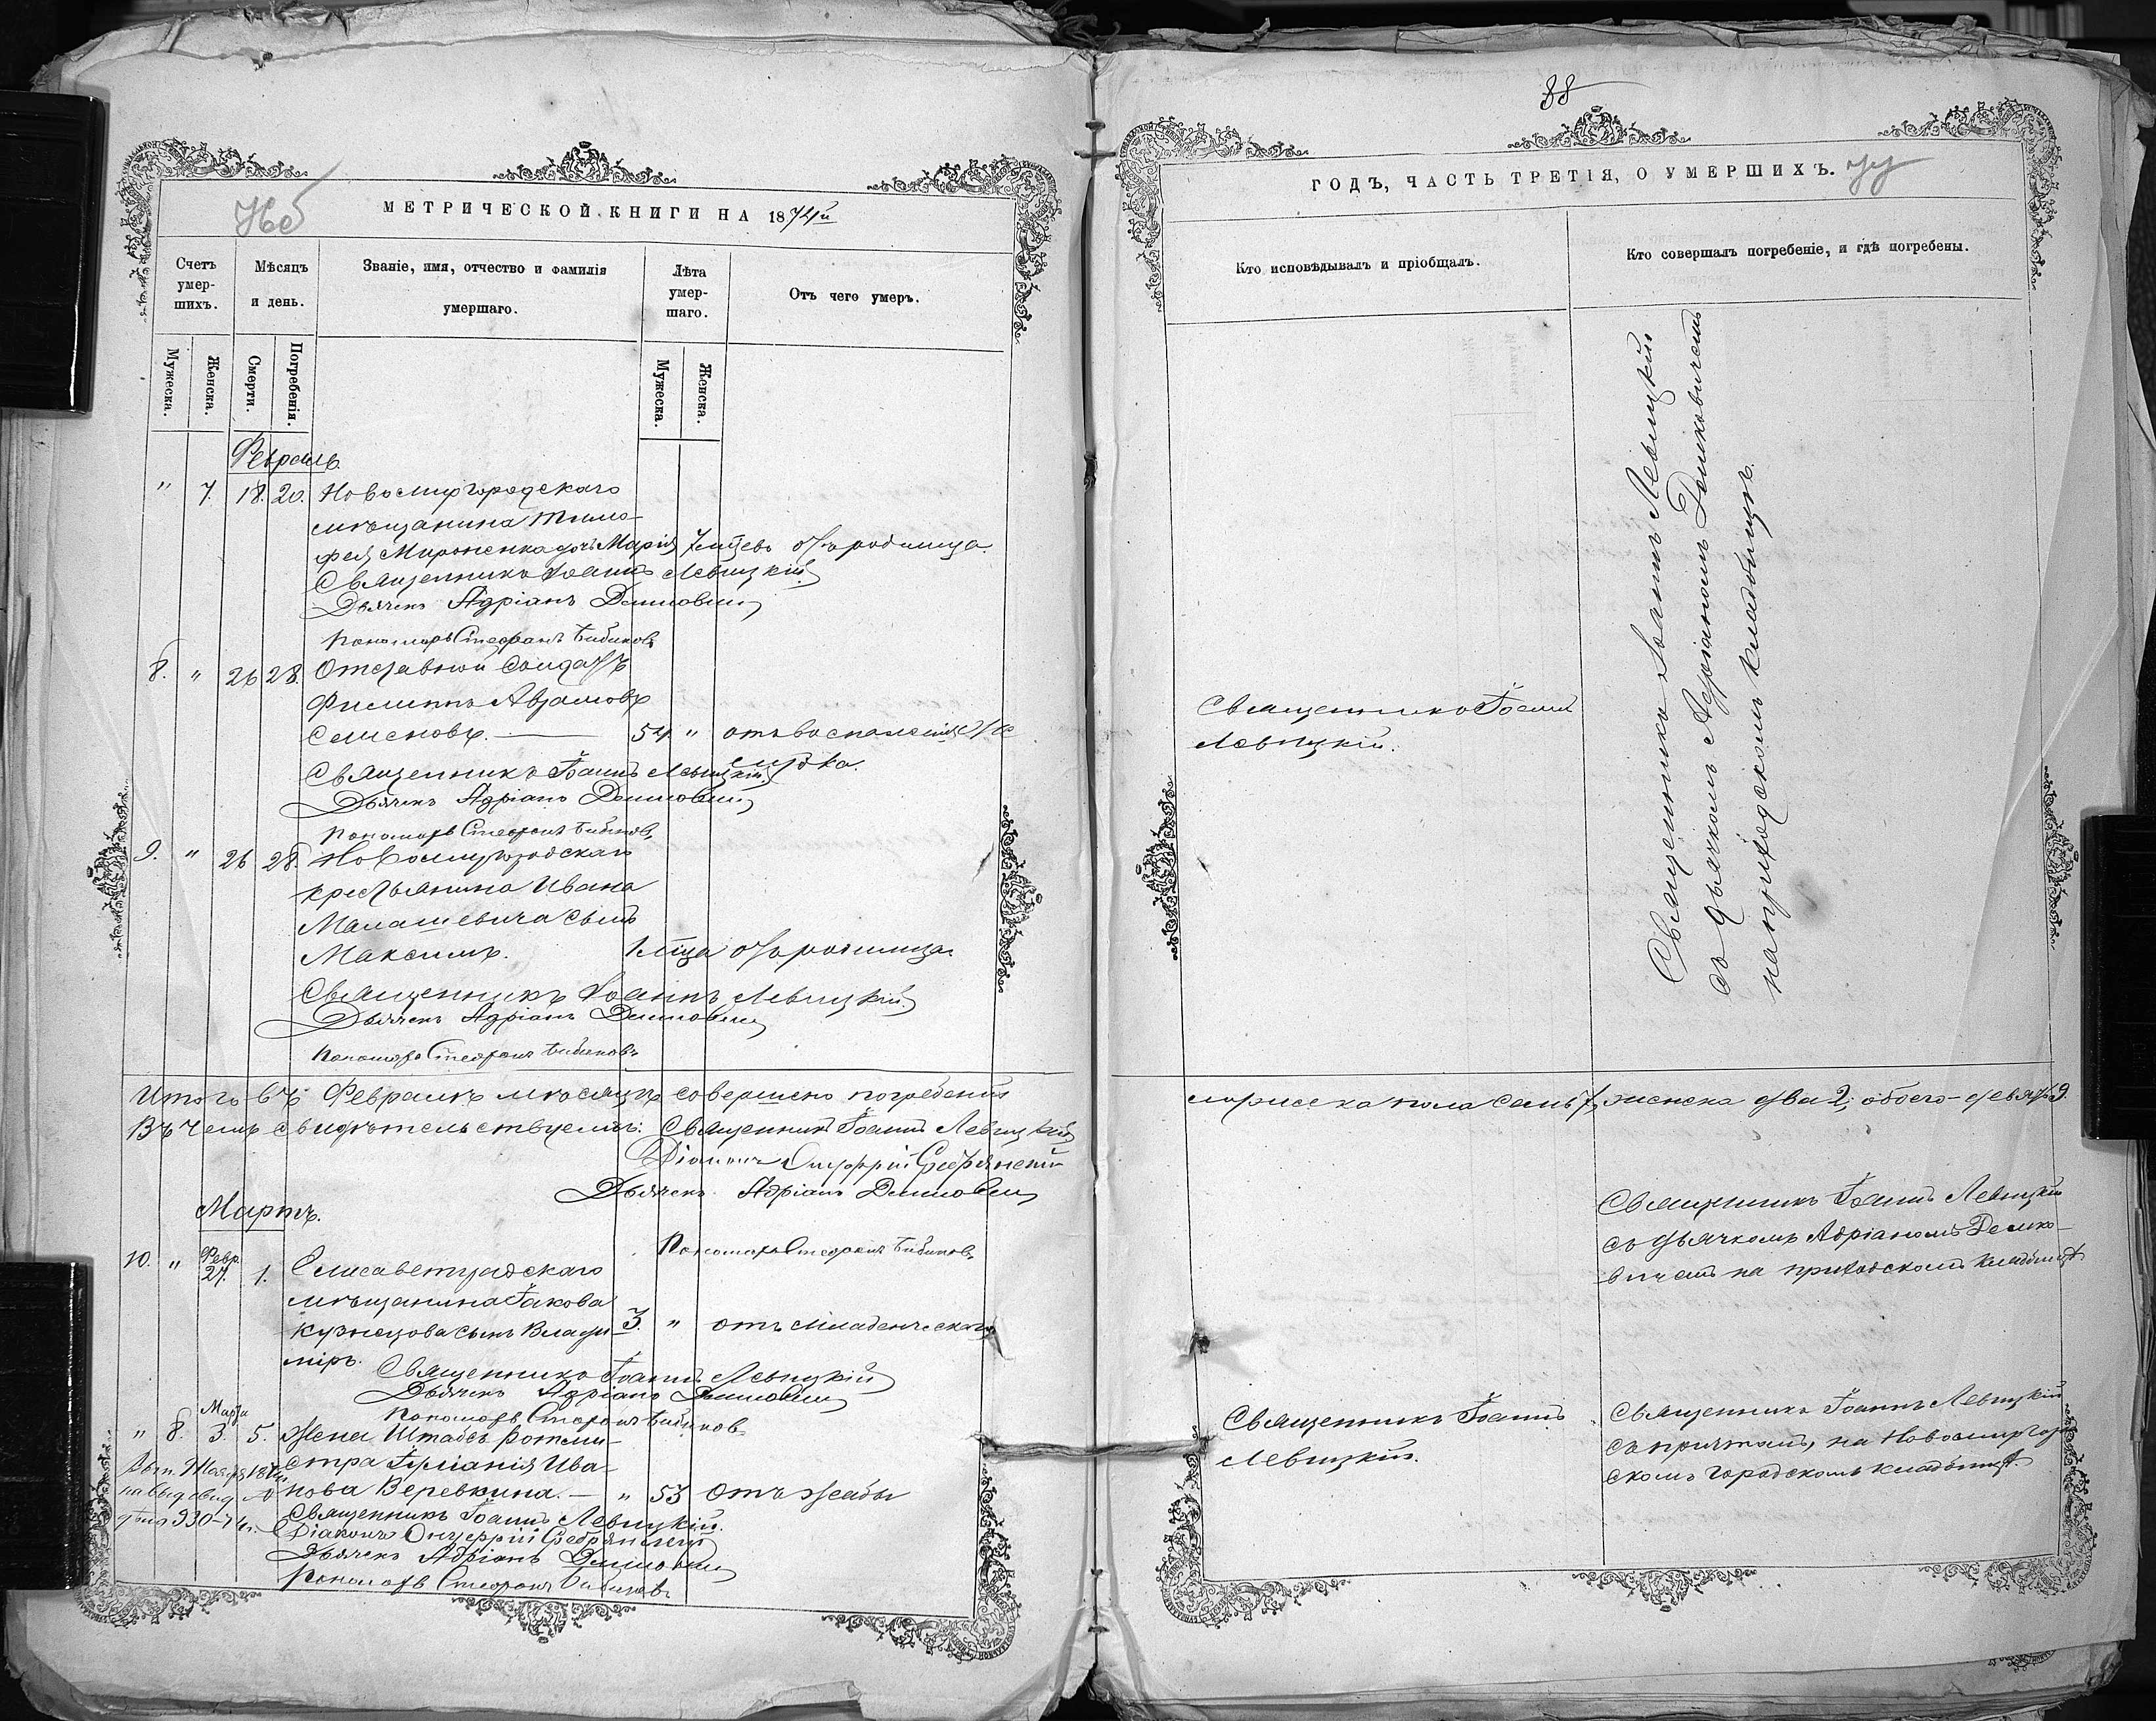 МЕТРИЧЕСКОЙ КНИГИ НА 1874й
Счетъ умер-шихъ.
Мѣсяцъ и день.
Званіе, имя, отчество и фамилія умершаго.
Лѣта умер-шаго.
Отъ чего умеръ.
Мужеска.
Женска.
Смерти.
Погребенія.
Мужеска.
Женска.
Февраль.
" 7. 18. 20. Новомиргородскаго
мѣщанина Тимо-
фея Мироненка дочь Марія 7 мцевъ отъ родимца.
Священникъ Іоаннъ Левицкій
Дьячекъ Адріанъ Демковичъ
Пономарь Стефанъ Бибиковъ
8. " 26 28. Отставной солдатъ
Филиппъ Абрамовъ
Семеновъ. — 54 " отъ воспаленія же
лудка.
Священникъ Іоаннъ Левицкій
Дьячекъ Адріанъ Демковичъ
Пономарь Стефанъ Бибиковъ
9. " 26 28. Новомиргородскаго
крестьянина Ивана
Малашевича сынъ
Максимъ. 1 мца отъ родимца.
Священникъ Іоаннъ Левицкій
Дьячекъ Адріанъ Демковичъ
Пономарь Стефанъ Бибиковъ
Итого въ Февралѣ мѣсяцѣ совершено погребенія
Въ чемъ свидѣтельствуемъ: Священникъ Іоаннъ Левицкій
Діаконъ Онуфрій Сребрянскій
Дьячекъ Адріанъ Демковичъ
Пономарь Стефанъ Бибиковъ
Мартъ.
10. " Февр. 27. 1. Елисаветградскаго
мѣщанина Іакова
Кузнецова сынъ Влади 3. " отъ младенческаго
міръ.
Священникъ Іоаннъ Левицкій
Дьячекъ Адріанъ Демковичъ
Пономарь Стефанъ Бибиковъ
Марта
" 8. 3. 5. Жена Штабсъ ротми-
стра Ива-
нова Веревкина. — " 53 Отъ жабы
Священникъ Іоаннъ Левицкій
Діаконъ Онуфрій Сребрянскій
Дьячекъ Адріанъ Демковичъ
Пономарь Стефанъ Бибиковъ
88
ГОДЪ, ЧАСТЬ ТРЕТІЯ, О УМЕРШИХЪ.
Кто исповѣдывалъ и пріобщалъ.
Кто совершалъ погребеніе, и гдѣ погребены.
Священникъ Іоаннъ
Левицкій.
Священникъ Іоаннъ Левицкій
съ дьячкомъ Адріаномъ Демковичемъ
на приходскомъ кладбищѣ.
мужеска пола семь 7, женска два 2; обоего девять 9.
Священникъ Іоаннъ Левицкій
съ дьячкомъ Адріаномъ Демко-
вичемъ на приходскомъ кладбищѣ
Священникъ Іоаннъ
Левицкій.
Священникъ Іоаннъ Левицкій
съ причтомъ, на Новомиргород
скомъ городскомъ кладбищѣ.